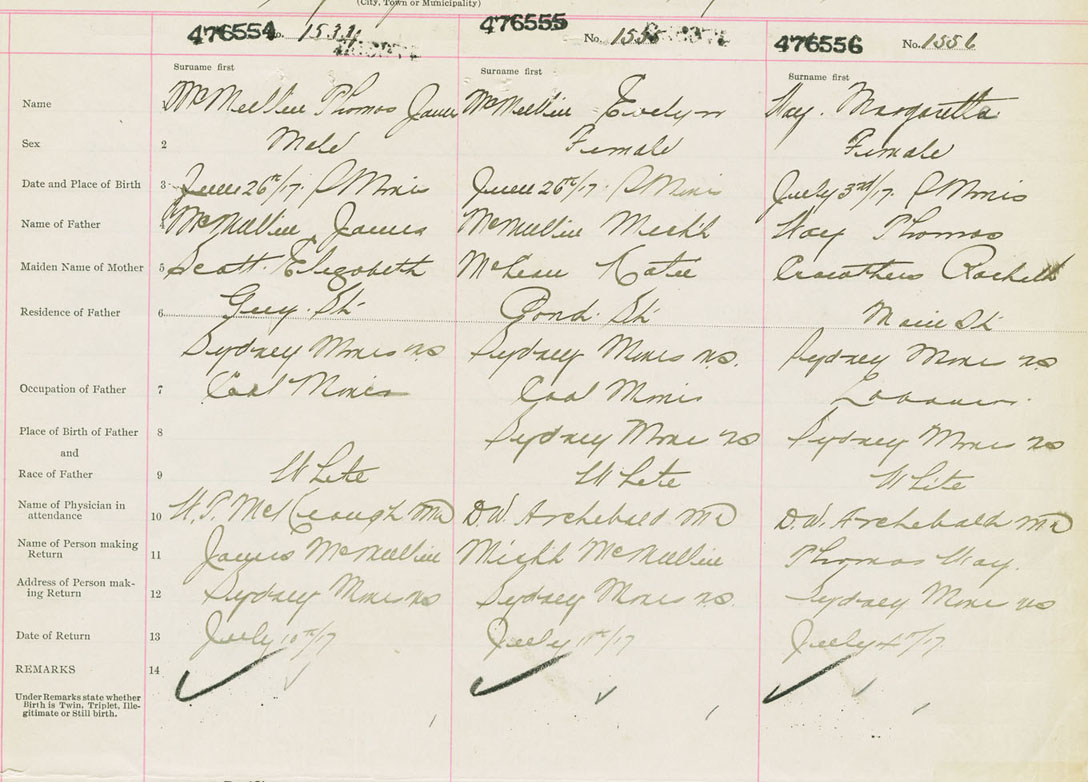 (City, Town or Municipality)
476554 No. 1531
476555 No. 155
476556 No. 1556
Surname first Surname first Surname first
Name McMullin Thomas James McMullin Evelyn Way. Margaretta
Sex 2 Male Female Female
Date and Place of Birth 3 June 26th/17. S Mines June 26th/17. S Mines July 3rd/17. S Mines
Name of Father 4 McMullin James McMullin Mich'l Way Thomas
Maiden Name of Mother 5 Scott. Elizabeth McLean Katie Crowthers Rachell
Residence of Father 6 St Pond. St Main St
Sydney Mines NS Sydney Mines N.S. Sydney Mines NS
Occupation of Father 7 Coal Miner Coal Miner Labourer.
Place of Birth of Father 8 Sydney Mines NS Sydney Mines NS
and
Race of Father 9 White White White
Name of Physician in
attendance 10 W.T. McKeough MD D.W. Archebald MD D.W. Archebald MD
Name of Person making
Return 11 James McMullin Mich'l McMullin Thomas Way.
Address of Person mak-
ing Return 12 Sydney Mines NS Sydney Mines N.S. Sydney Mines NS
Date of Return 13 July 10th/17 July 11th/17 July 4th/17
REMARKS 14
Under Remarks state whether
Birth is Twin, Triplet, Ille-
gitimate or Still birth.